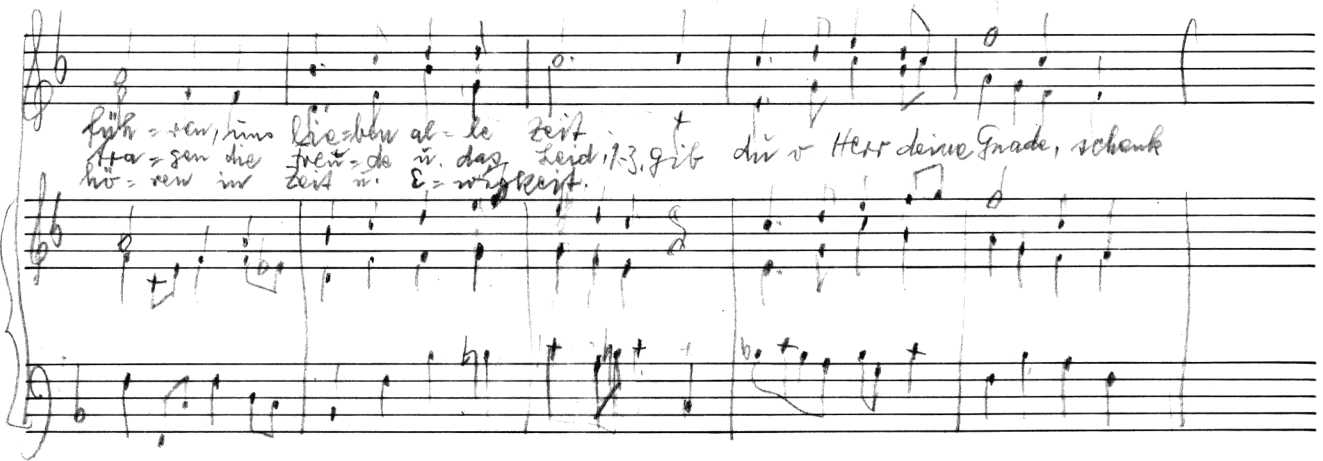 füh = ren, uns lie = ben al = le Zeit.
tra = gen die Freu = de u. das Leid, 1.-3. gib du o Herr deine Gnade, schenk
hö = ren in Zeit u. E = wigkeit.